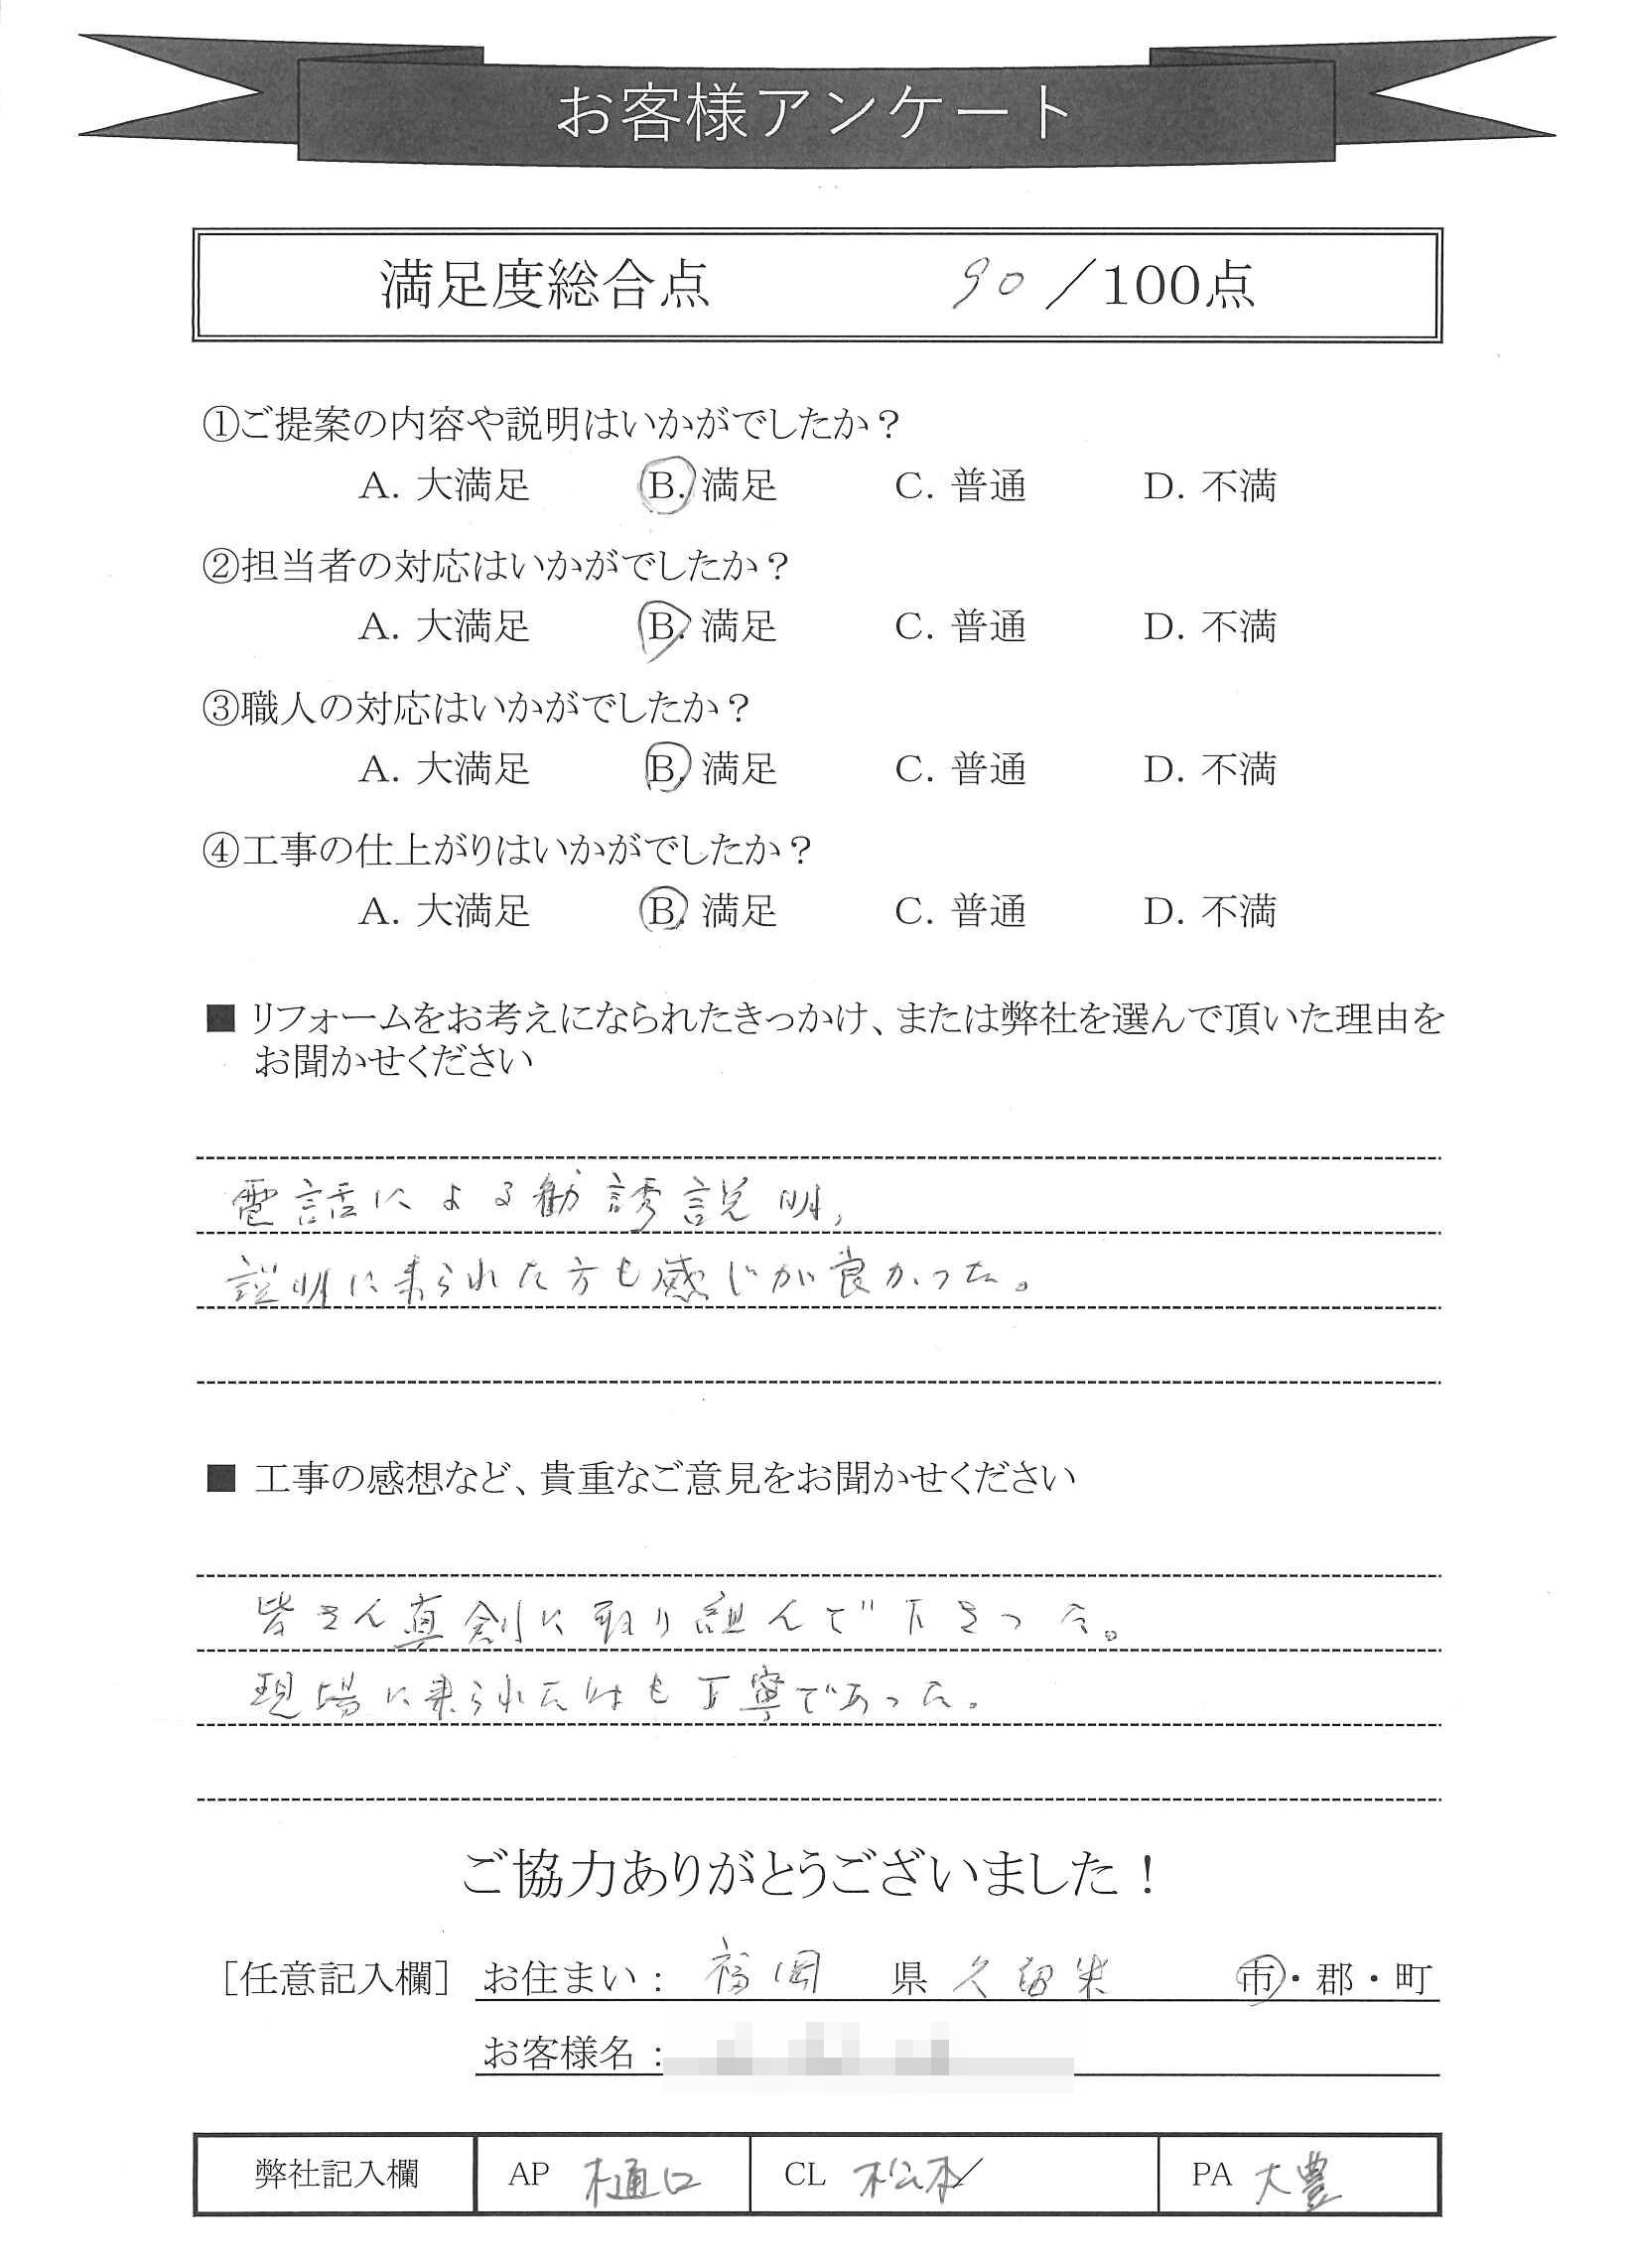 お客様アンケート
満足度総合点 90／100点
①ご提案の内容や説明はいかがでしたか？
A. 大満足 B. 満足 C. 普通 D. 不満
②担当者の対応はいかがでしたか？
A. 大満足 B. 満足 C. 普通 D. 不満
③職人の対応はいかがでしたか？
A. 大満足 B. 満足 C. 普通 D. 不満
④工事の仕上がりはいかがでしたか？
A. 大満足 B. 満足 C. 普通 D. 不満
■ リフォームをお考えになられたきっかけ、または弊社を選んで頂いた理由を
お聞かせください
電話による勧誘説明,
説明に来られた方も感じが良かった。
■ 工事の感想など、貴重なご意見をお聞かせください
皆さん真剣に取り組んで下さった。
現場に来られた も丁寧であった。
ご協力ありがとうございました！
［任意記入欄］ お住まい： 福岡 県 久留米 市・郡・町
お客様名：
弊社記入欄 AP 樋口 CL 松本 PA 大豊